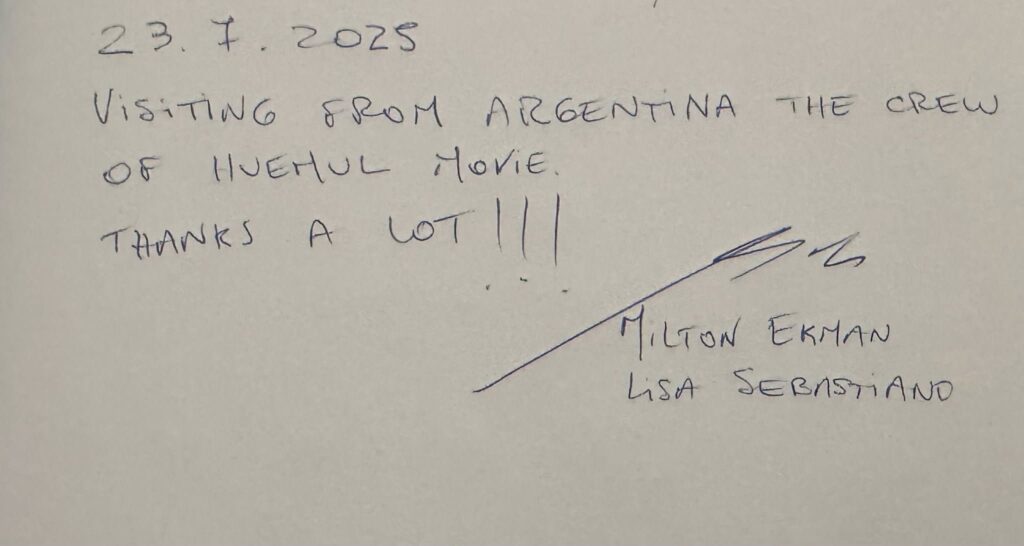 23.7.2025
VISITING FROM ARGENTINA THE CREW
OF HUEMUL MOVIE.
THANKS A LOT!!!
MILTON EKMAN
LISA SEBASTIANO